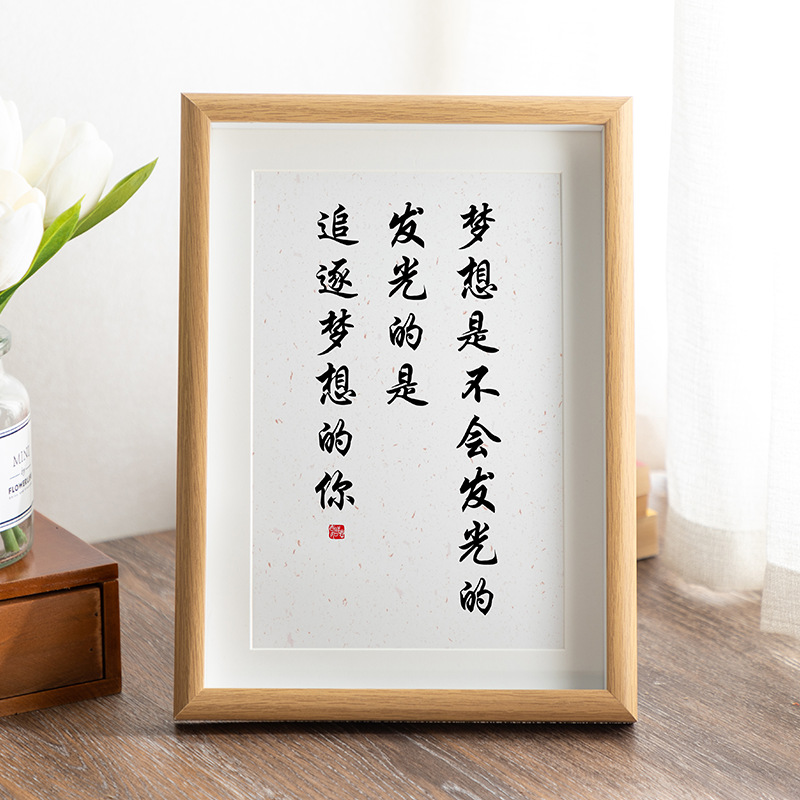 梦想是不会发光的
发光的是
追逐梦想的你